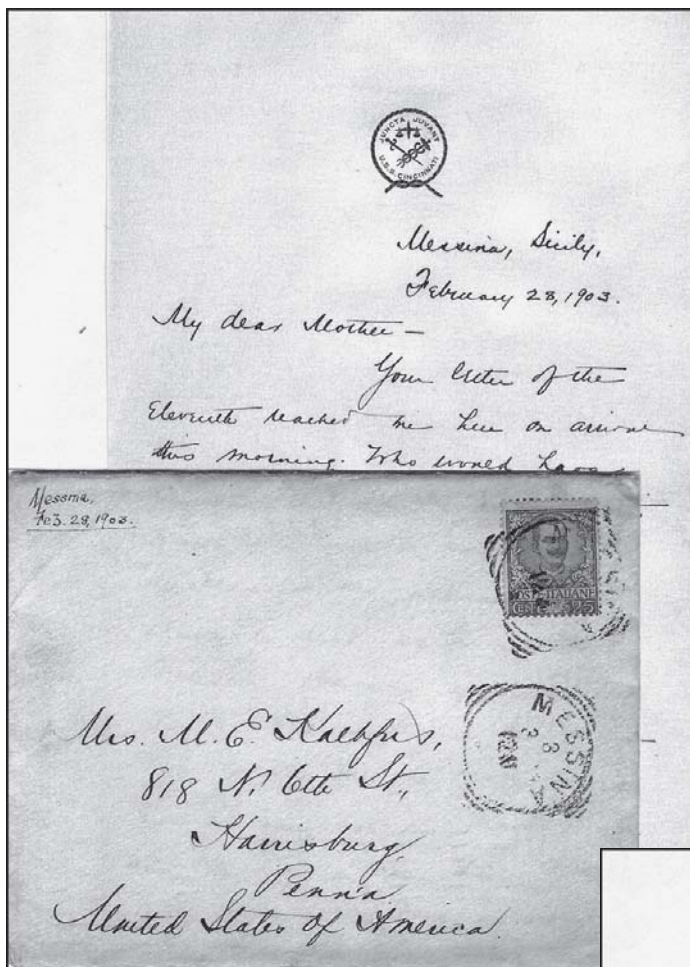 JUNCTA JUVANT
U.S.S. CINCINNATI
Messina, Sicily,
February 28, 1903.
My dear Mother —
Your letter of the
Eleventh reached me here on arrival
this morning. Who would have
Messina,
Feb. 28, 1903.
POSTE ITALIANE
CENT 25
MESSINA
Mrs. M. E.
818 N. 6th St.,
Harrisburg,
Penn'a
United States of America.